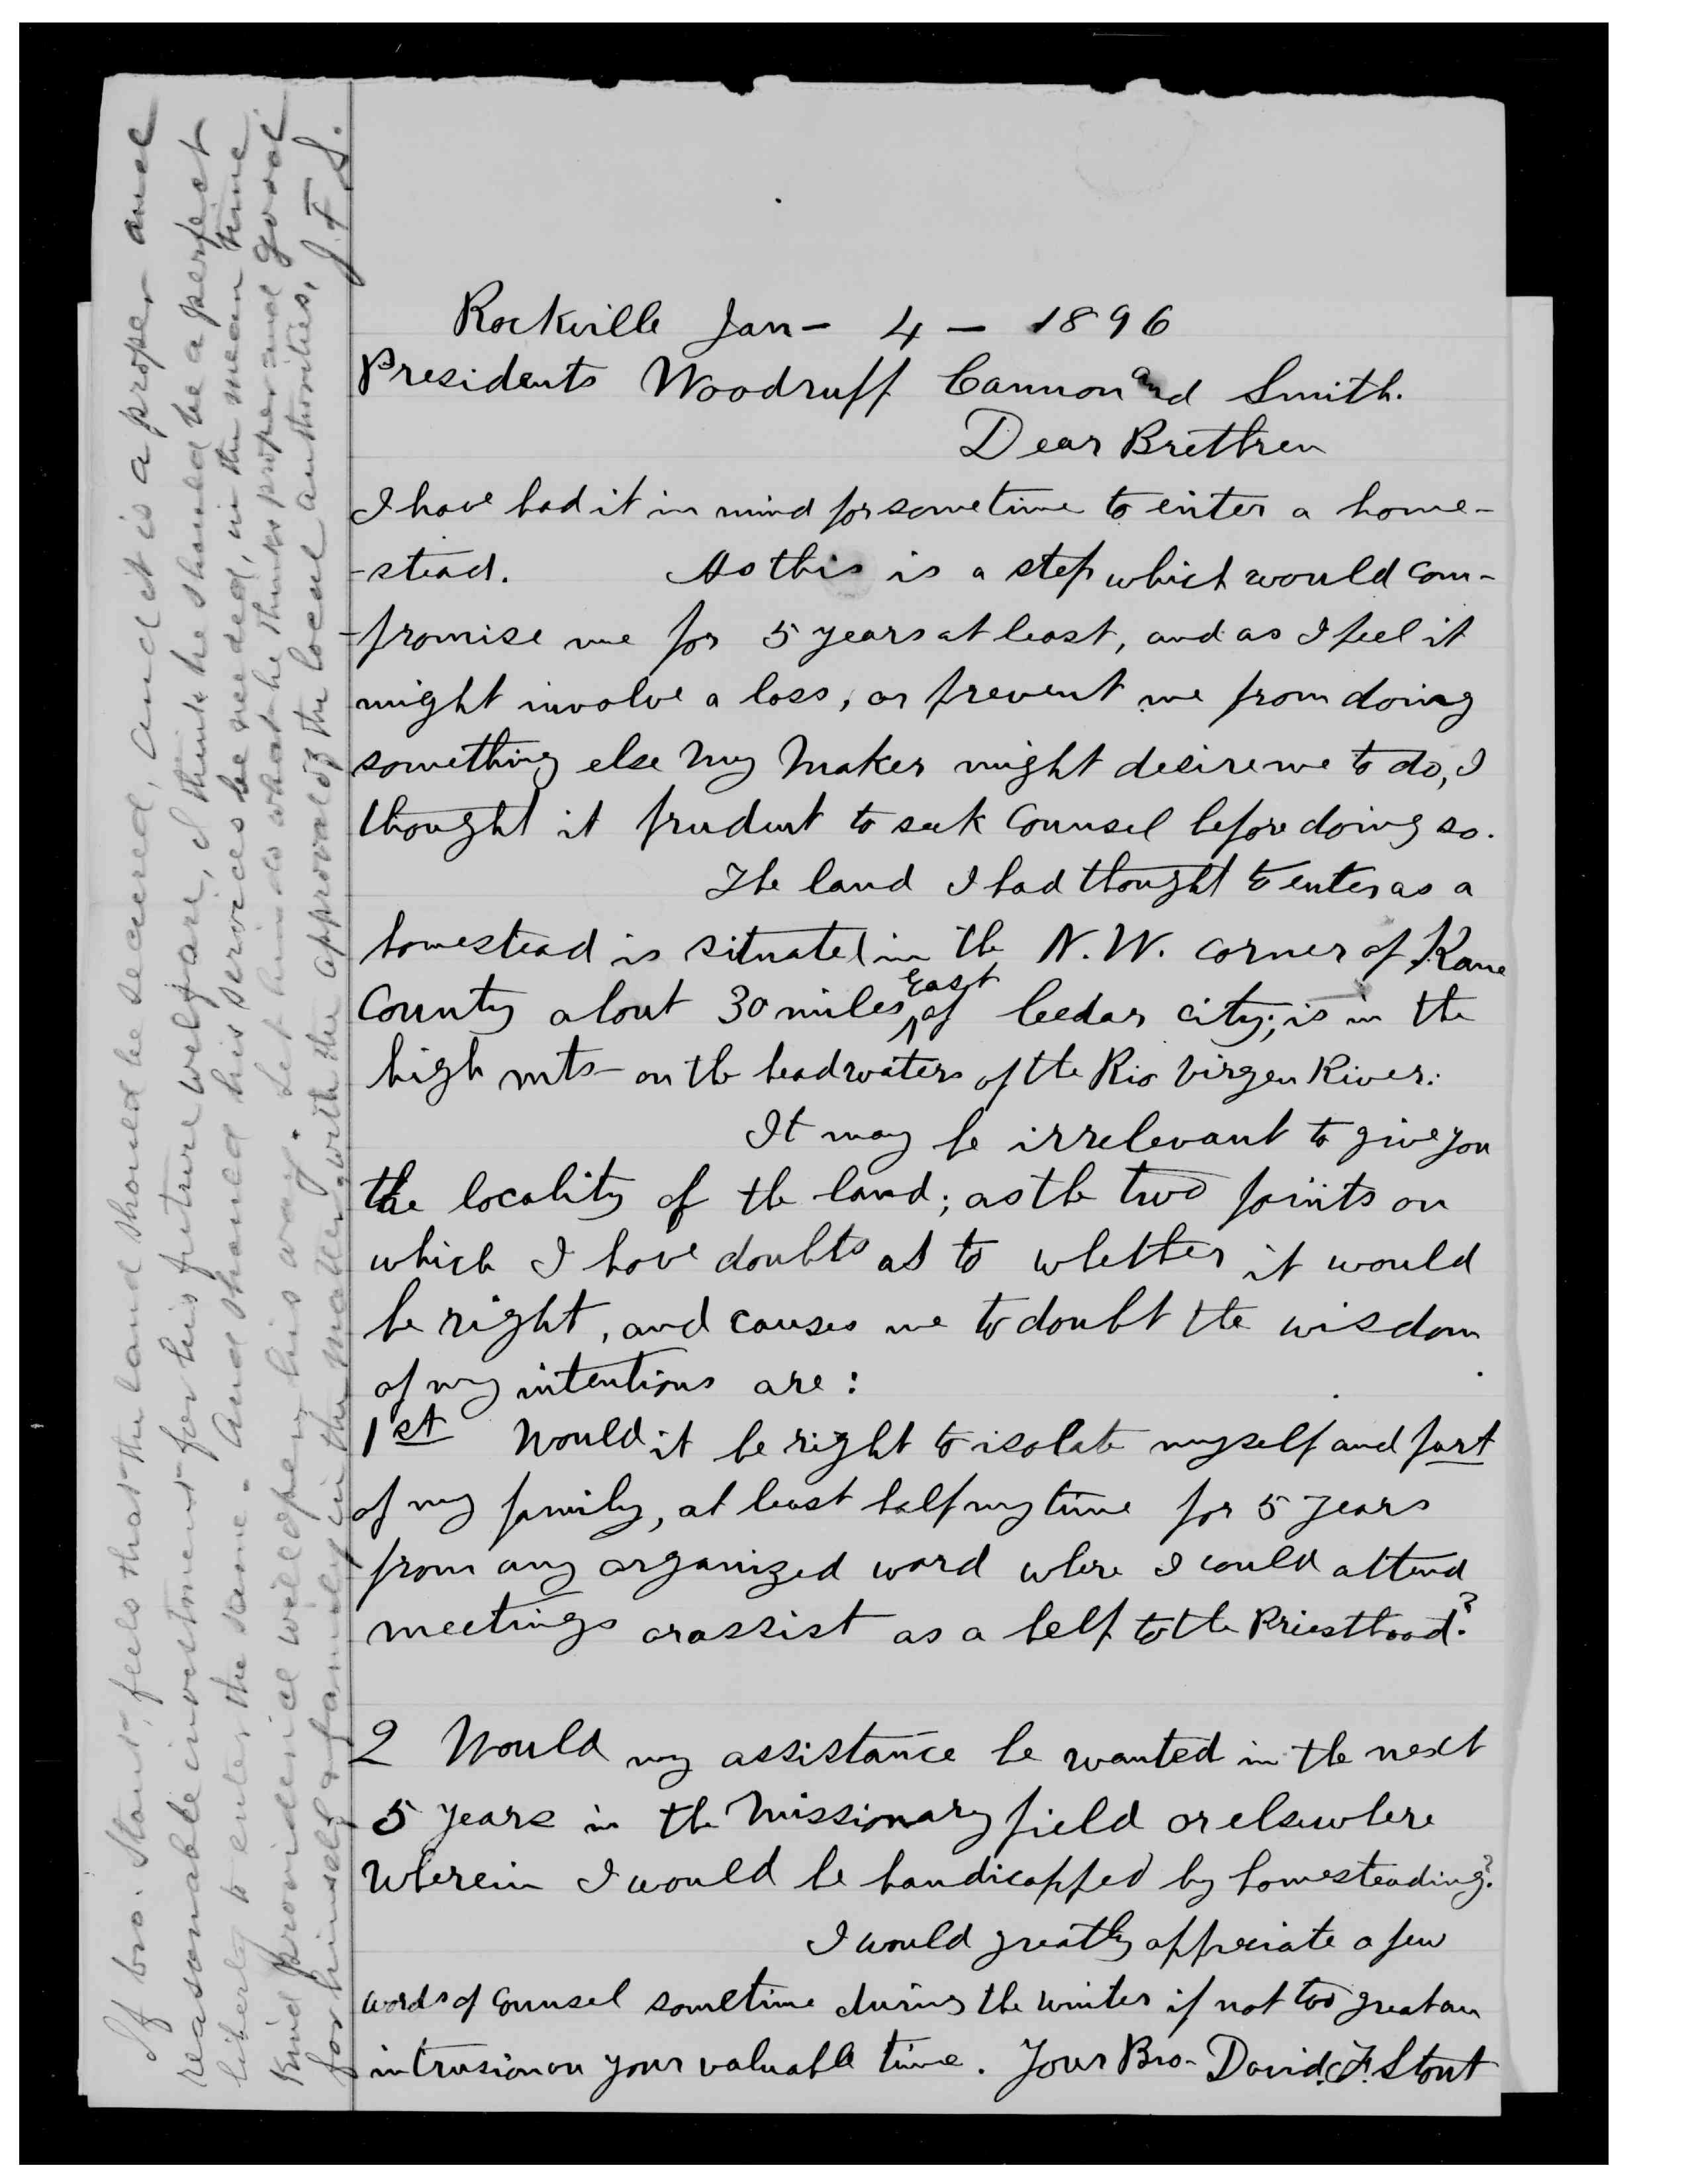 Rockville Jan- 4 - 1896
Presidents Woodruff Cannon and Smith.
Dear Brethren
I have had it in mind for sometime to enter a home-
-stead. As this is a step which would com-
-promise me for 5 years at least, and as I feel it
might involve a loss, or prevent me from doing
something else my Maker might desire me to do, I
thought it prudent to seek Counsel before doing so.
The land I had thought to enter as a
homestead is situated in the N.W. corner of Kane
County about 30 miles East of Ceedar city; is in the
high mts- on the headwaters of the Rio Virgen River.
It may be irrelevant to give you
the locality of the land; as the two points on
which I have doubts as to whether it would
be right, and causes me to doubt the wisdom
of my intentions are:
1st Would it be right to isolate myself and part
of my family, at least half my time for 5 years
from any organized ward where I could attend
meetings or assist as a help to the Priesthood?
2 Would my assistance be wanted in the next
5 years in the Missionary field or elsewhere
wherein I would be handicapped by homesteading?
I would greatly appreciate a few
words of Counsel sometime during the winter if not too great an
intrusion on your valuable time. Your Bro- David. F. Stout
If bro. Stout, feels that the land should be secured, and it is a proper and
reasonable investment for his future welfare, I think he should be a perfect
liberty to enter the same. And should his services be needed, in the mean time
Kind providence will open his way. Let him do what he thinks proper and good
for himself & family in the matter, with the approval of the local authorities, J. F. S.